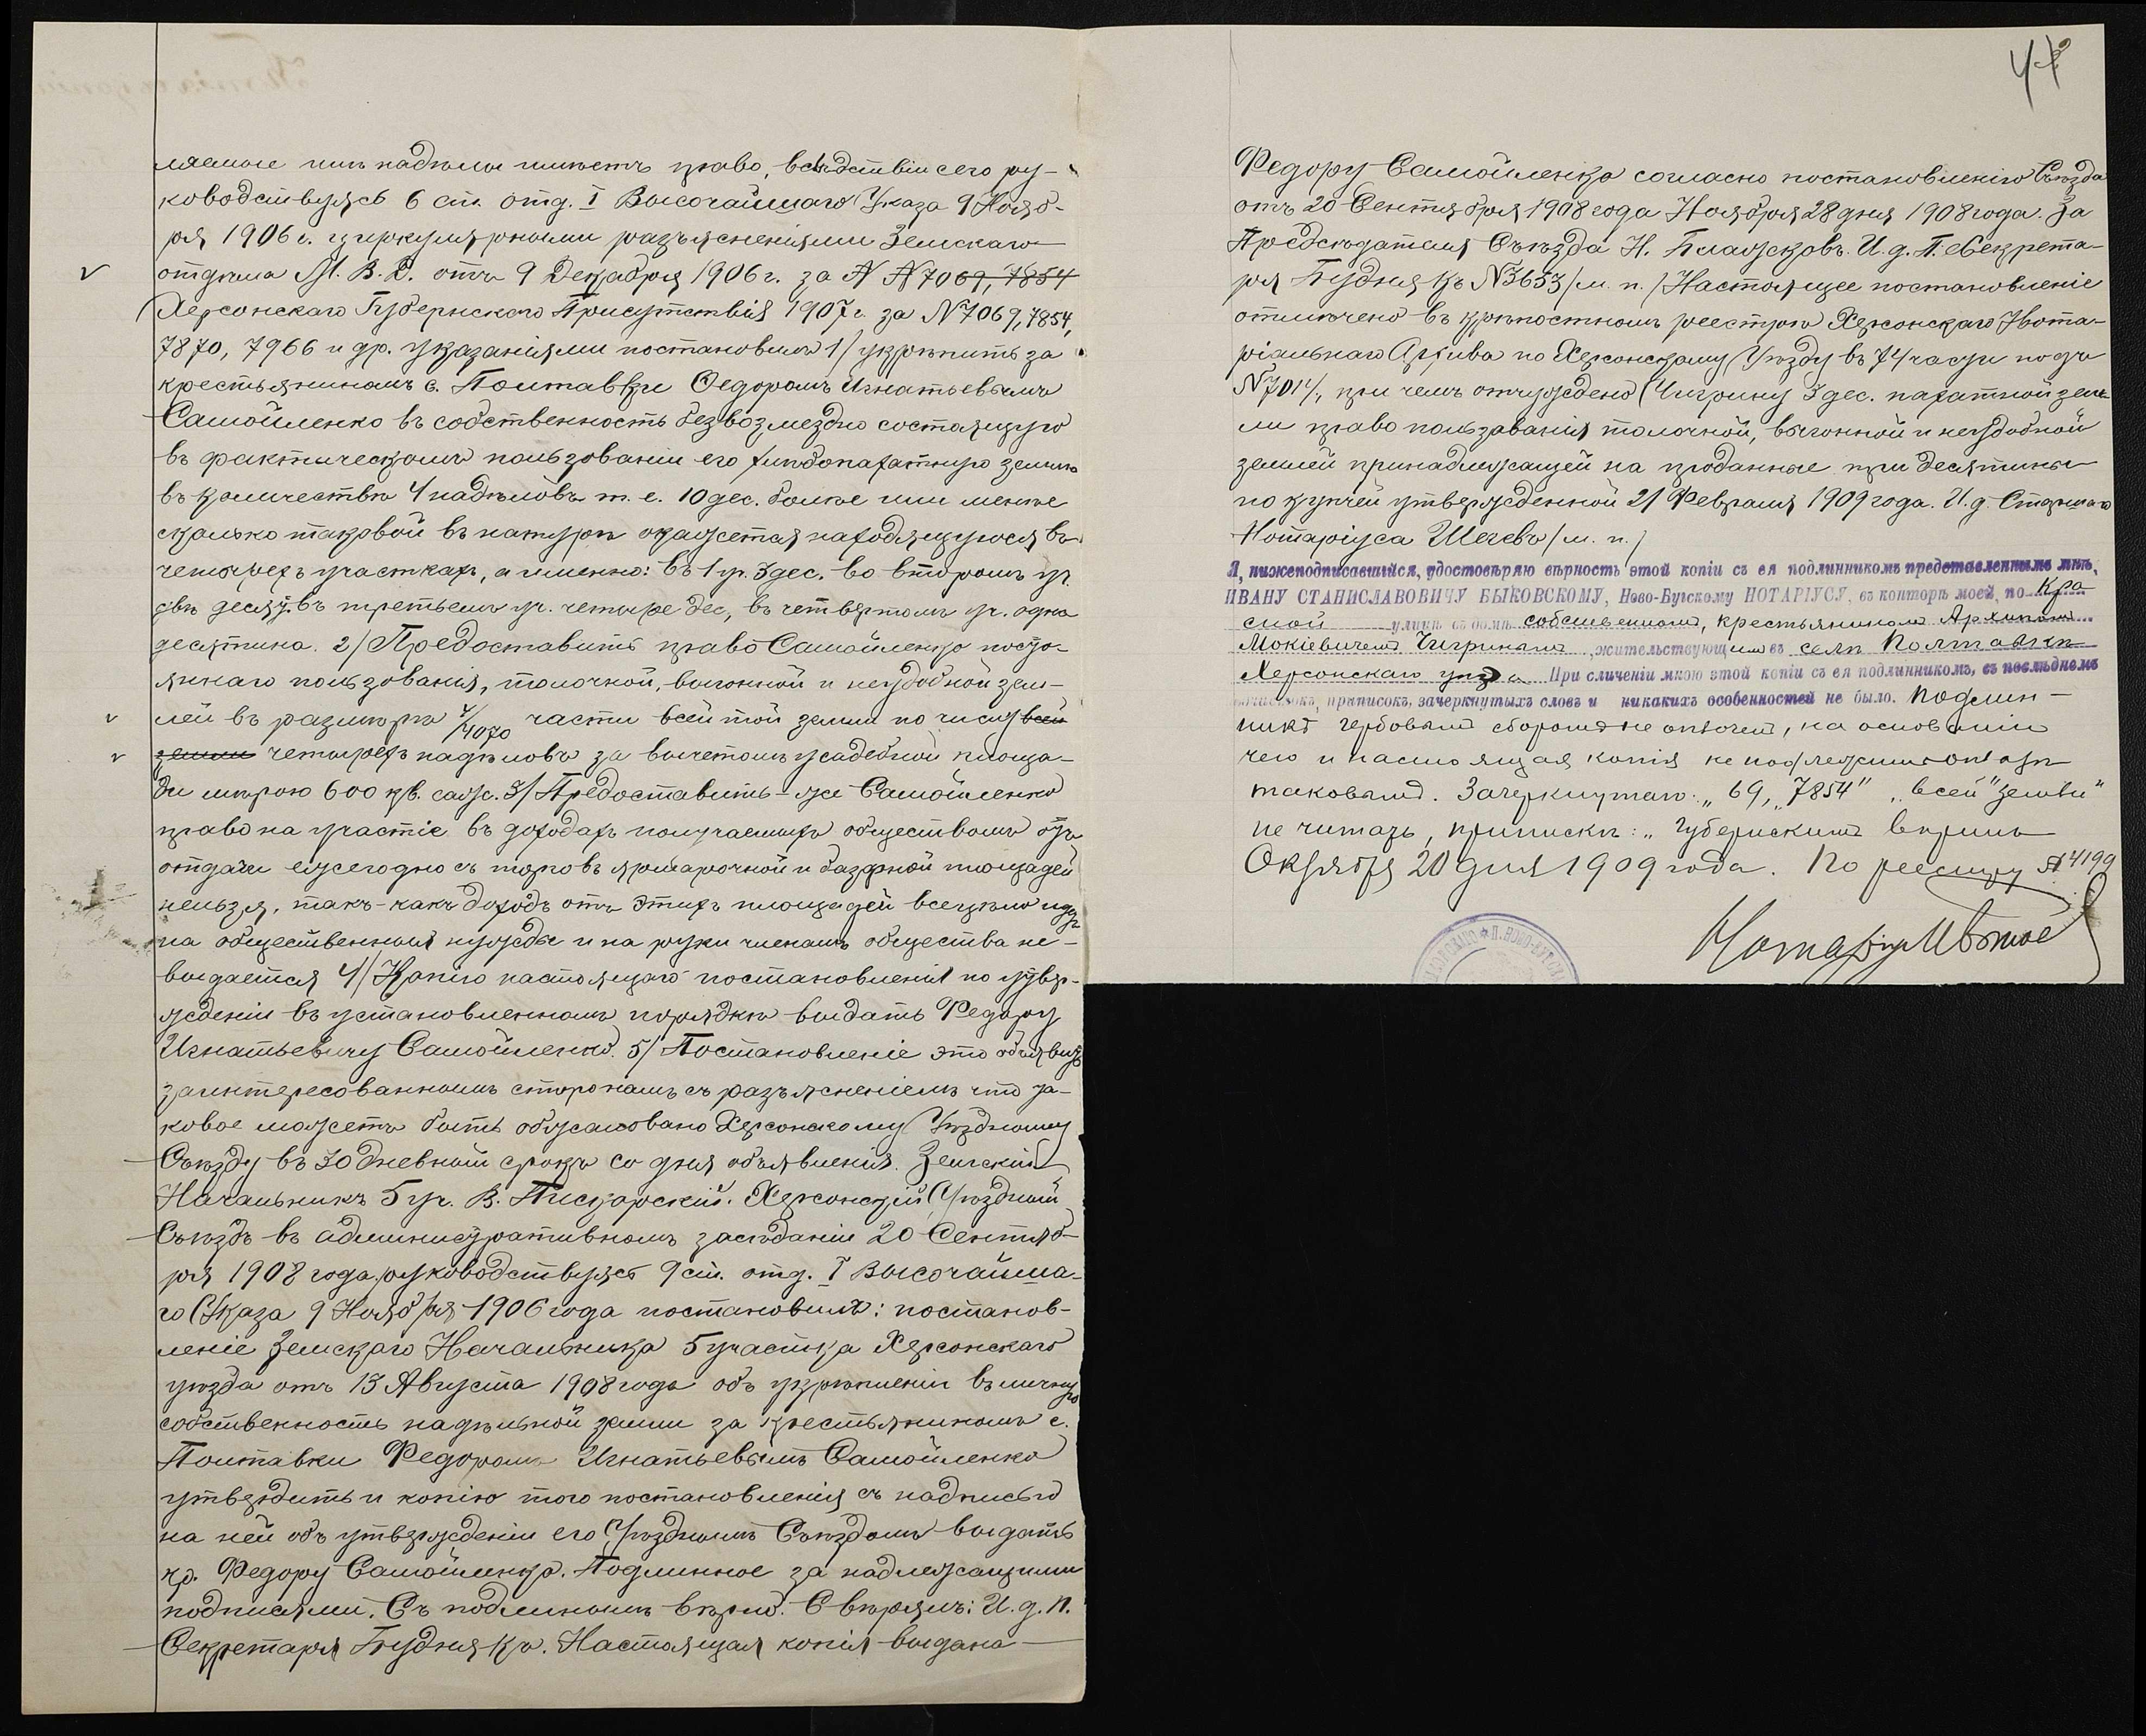 ляемые имъ надѣлы имѣетъ право, вслѣдствіи сего ру-
ководствуясь 6 ст. отд. I Высочайшаго Указа 9 Нояб-
ря 1906 г. циркулярными разъясненіями Земскаго
отдѣла М. В. Д. отъ 9 Декабря 1906 г. за N N 7069, 7854
Херсонскаго Губернскаго Присутствія 1907 г. за N 7069, 7854,
7870, 7966 и др. указаніями постановилъ 1/ укрѣпить за
крестьяниномъ с. Полтавки Федоромъ Игнатьевымъ
Самойленко въ собственность безвозмездно состоящую
въ фактическомъ пользованіи его хлѣбопахатную землю
въ количествѣ 4 надѣловъ т. е. 10 дес. болѣе или менѣе
сколько таковой въ натурѣ окажется находящуюся въ
четырехъ участкахъ, а именно: въ 1 уч. 3 дес. во второмъ уч.
двѣ десят. въ третьемъ уч. четыре дес, въ четвертомъ уч. одна
десятина. 2/ Предоставить право Самойленко посто-
яннаго пользованія, толочной, выгонной и неудобной зем-
лей въ размѣрѣ 4/4070 части всей той земли по числу всей
земли четырехъ надѣловъ за вычетомъ усадебной площа-
ди мѣрою 600 кв. саж. 3/ Предоставить-же Самойленко
право на участіе въ доходахъ получаемыхъ обществомъ отъ
отдачи ежегодно съ торговъ ярмарочной и базарной площадей
нельзя, такъ-какъ доходъ отъ этихъ площадей всецѣло идетъ
на общественныя нужды и на руки членамъ общества не-
выдается 4/ Копію настоящаго постановленія по утвер-
жденіи въ установленномъ порядкѣ выдать Федору
Игнатьевичу Самойленко. 5/ Постановленіе это объявить
заинтересованнымъ сторонамъ съ разъясненіемъ что та-
ковое можетъ быть обжаловано Херсонскому Уѣздному
Съѣзду въ 30 дневный срокъ со дня объявленія. Земскій
Начальникъ 5 уч. В. Пискарскій. Херсонскій Уѣздный
Съѣздъ въ административномъ засѣданіи 20 Сентяб-
ря 1908 года руководствуясь 9 ст. отд. I Высочайша-
го Указа 9 Ноября 1906 года постановилъ: постанов-
леніе Земскаго Начальника 5 участка Херсонскаго
уѣзда отъ 13 Августа 1908 года объ укрѣпленіи въ личную
собственность надѣльной земли за крестьяниномъ с.
Полтавки Федоромъ Игнатьевымъ Самойленко
утвердить и копію того постановленія съ надписью
на ней объ утвержденіи его Уѣзднымъ Съѣздомъ выдать
кр. Федору Самойленко. Подлинное за надлежащими
подписями. Съ подлиннымъ вѣрно. Свѣрялъ: И. д. п.
Секретаря Буднякъ. Настоящая копія выдана
Федору Самойленко согласно постановленію Съѣзда
отъ 20 Сентября 1908 года Ноября 28 дня 1908 года. За
Предсѣдателя Съѣзда Н. Блажковъ. И. д. п. Секрета-
ря Буднякъ N 3653 /м. п./ Настоящее постановленіе
отмѣчено въ крѣпостномъ реестрѣ Херсонскаго Нота-
ріальнаго Архива по Херсонскому Уѣзду въ 74 части подъ
N 701/, при чемъ отчуждено Чигрину 3 дес. пахатной зем-
ли право пользованія толочной, выгонной и неудобной
землей принадлежащей на проданные три десятины
по купчей утвержденной 21 Февраля 1909 года. И. д. Старшаго
Нотаріуса Шегевъ /м. п./
Я, нижеподписавшійся, удостовѣряю вѣрность этой копіи съ ея подлинникомъ представленнымъ мнѣ,
ИВАНУ СТАНИСЛАВОВИЧУ БЫКОВСКОМУ, Ново-Бугскому НОТАРІУСУ, въ конторѣ моей, по Кра
сной улицѣ въ домѣ собственномъ, крестьяниномъ Архипомъ
Мокіевичемъ Чигринымъ, жительствующимъ въ селѣ Полтавкѣ
Херсонскаго уѣзда. При сличеніи мною этой копіи съ ея подлинникомъ, въ послѣднемъ
приписокъ, зачеркнутыхъ словъ и никакихъ особенностей не было. Подлин-
никъ гербовымъ сборомъ не оплаченъ, на основаніи
чего и настоящая копія не подлежитъ оплатѣ
таковымъ. Зачеркнутаго: „69, „7854" „всей" „земли"
не читать, приписка: „Губернскимъ вѣрить
Октября 20 дня 1909 года. По реестру N 4199
Нотаріусъ